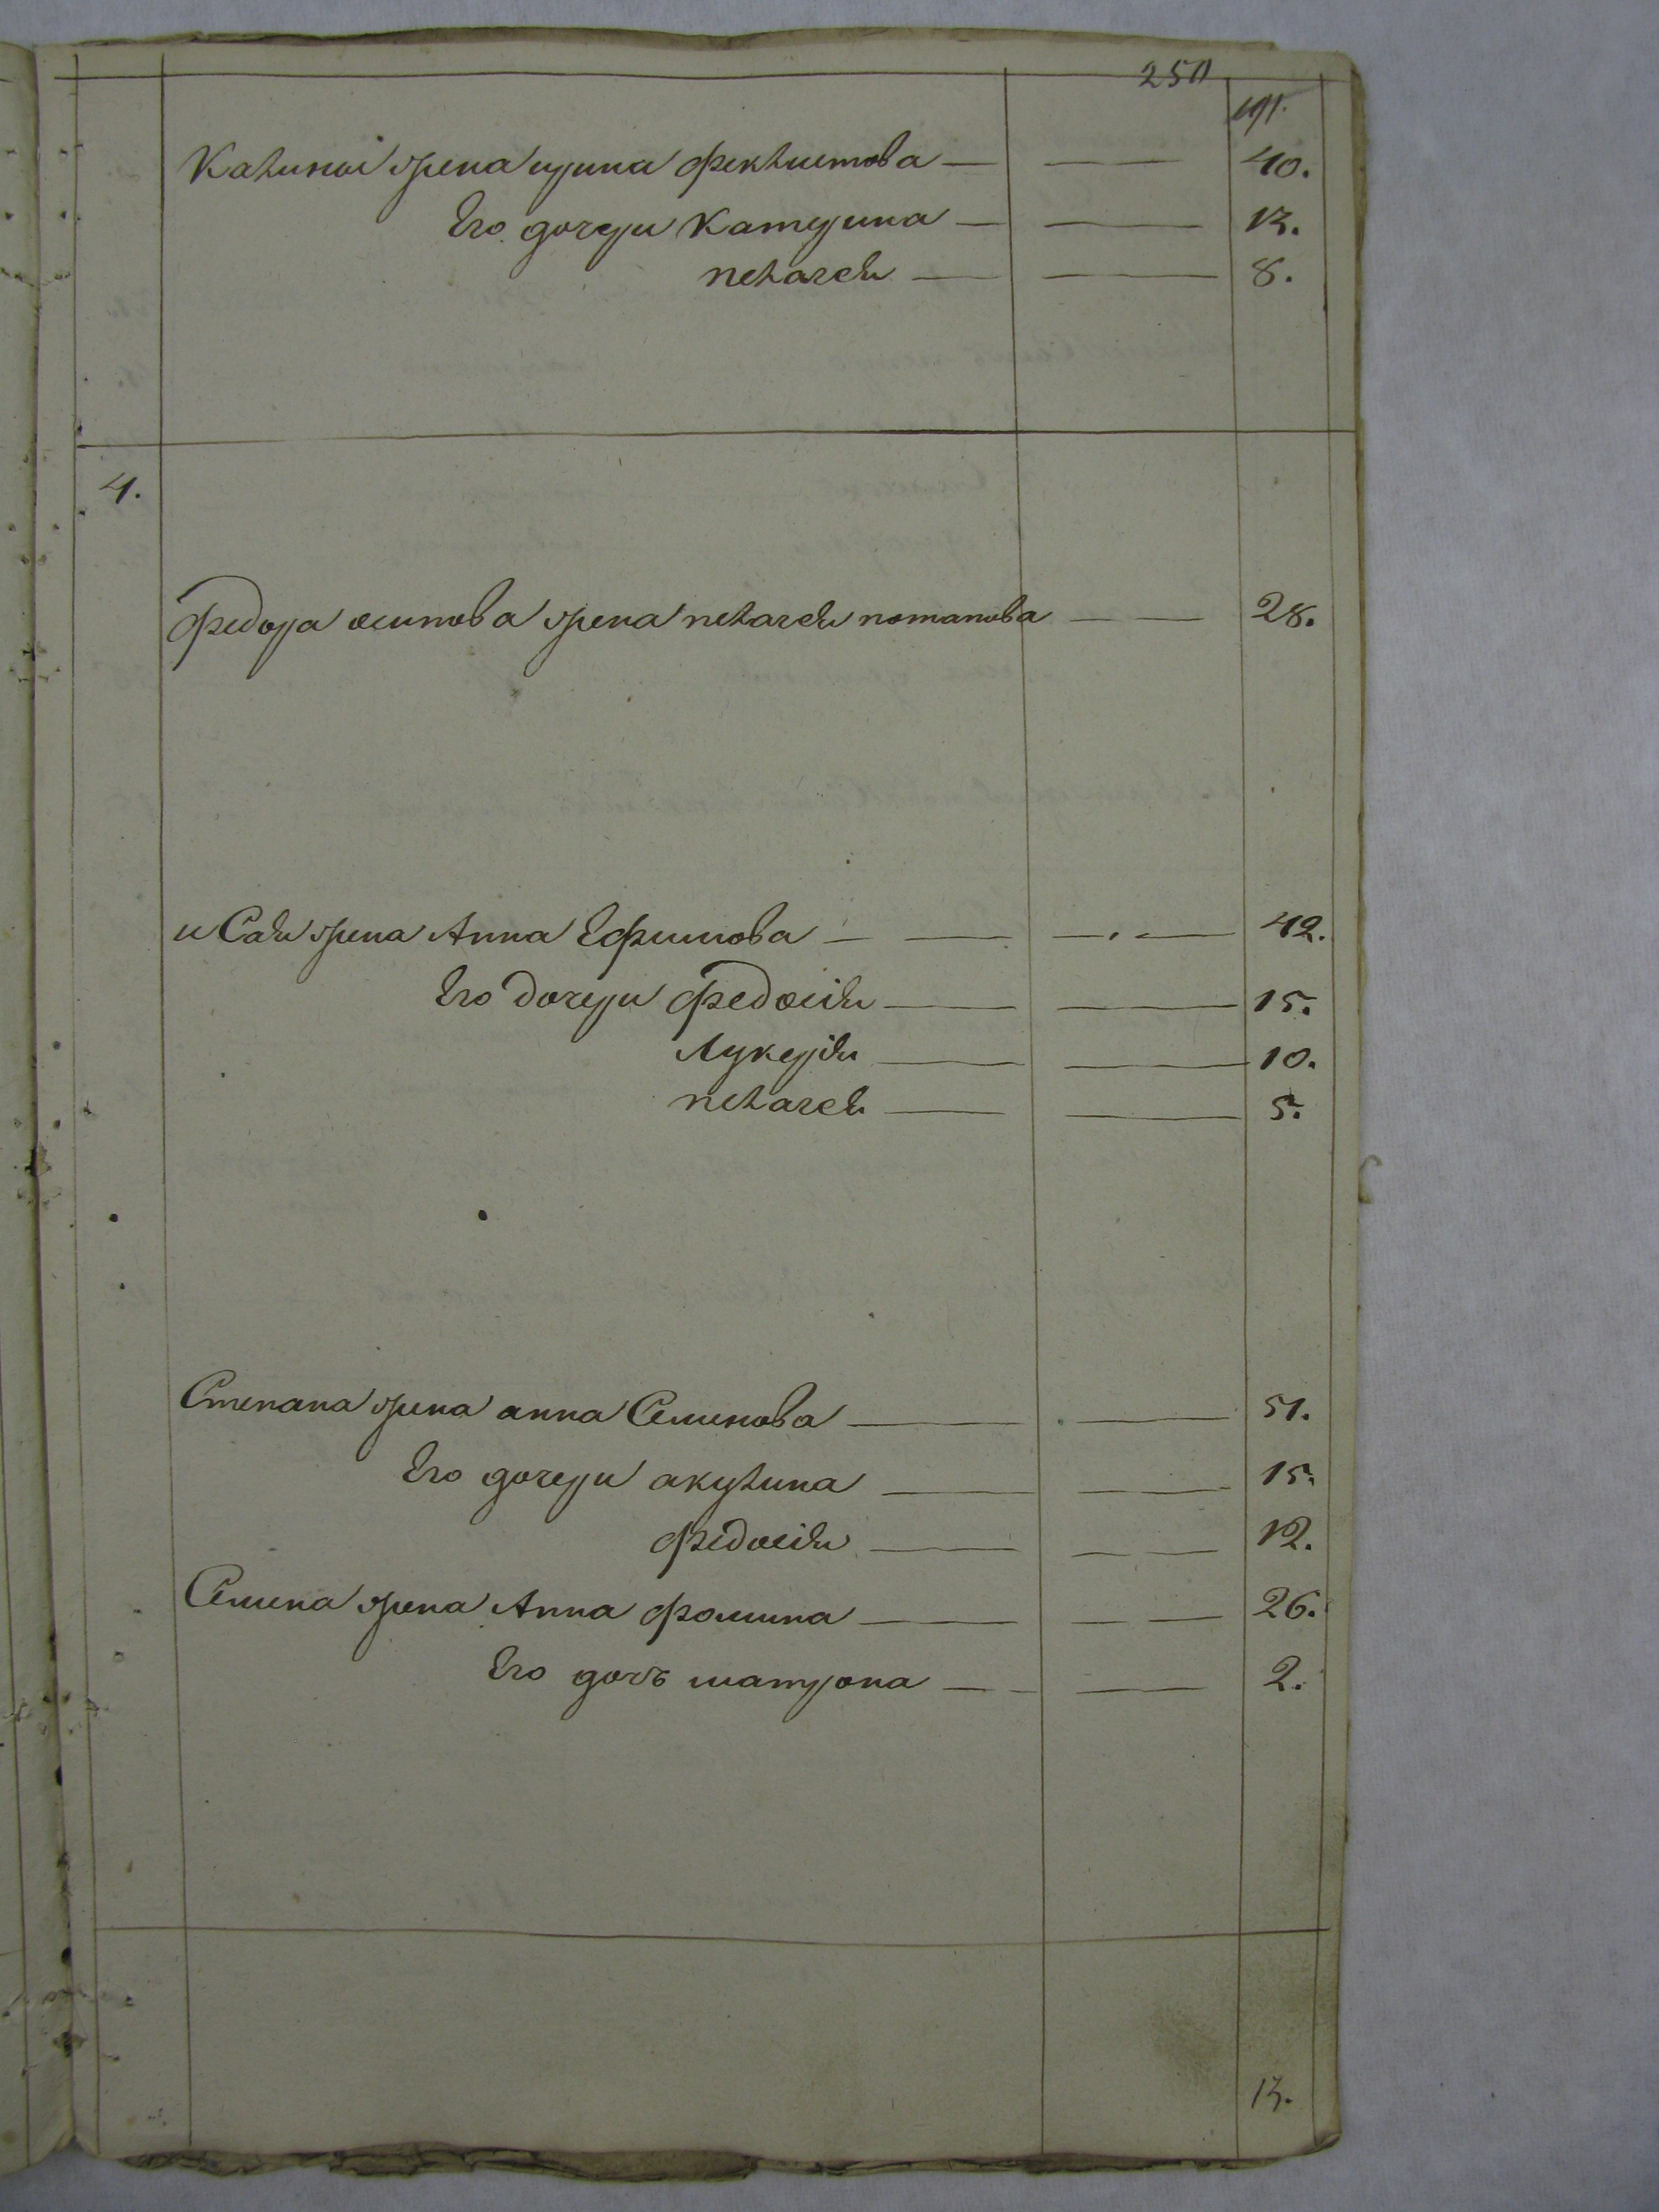 250
Калинои жена ирина феклистова — — 40.
Его дочери катерина — — 13.
пелагея — — 8.
4.
Федора осипова жена пелагея потапова — — 28.
исая жена Анна Ефимова — — 42.
Его дочери Федосія — — 15.
Лукерія — — 10.
пелагея — — 5.
Степана жена анна Семенова — — 51.
Его дочери акулина — — 15.
федосія — — 12.
Семена жена Анна фомина — — 26.
Его дочь матрона — — 2.
13.